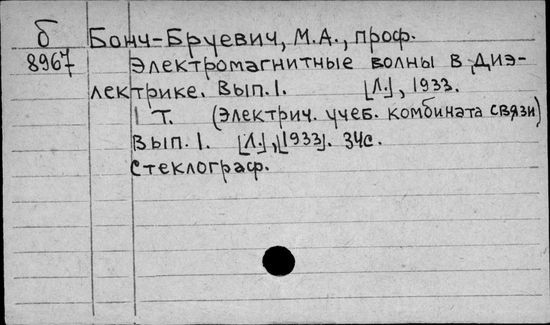 б Бонч-Бруевич, М.А., проф.
8967 Электромагнитные волны в диэ-
лектрике. Вып. 1. [Л.], 1933.
1 т. (Электрич. учеб. комбината связи)
Вып. 1. [Л.], [1933]. 34с.
Стеклограф.